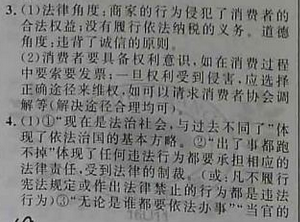 3.(1)法律角度:商家的行为侵犯了消费者的
合法权益;没有履行依法纳税的义务。道德
角度:违背了诚信的原则。
(2)消费者要具备权利意识,如在消费过程
中要索要发票;一旦权利受到侵害,应选择
正确途径来维权,如可以请求消费者协会调
解等(解决途径合理均可)。
4.(1)①“现在是法治社会,与过去不同了”体
现了依法治国的基本方略。②“出了事都跑
不掉”体现了任何违法行为都要承担相应的
法律责任,受到法律的制裁。(或:凡不履行
宪法规定或作出法律禁止的行为都是违法
行为)③“无论是谁都要依法办事”“当官的